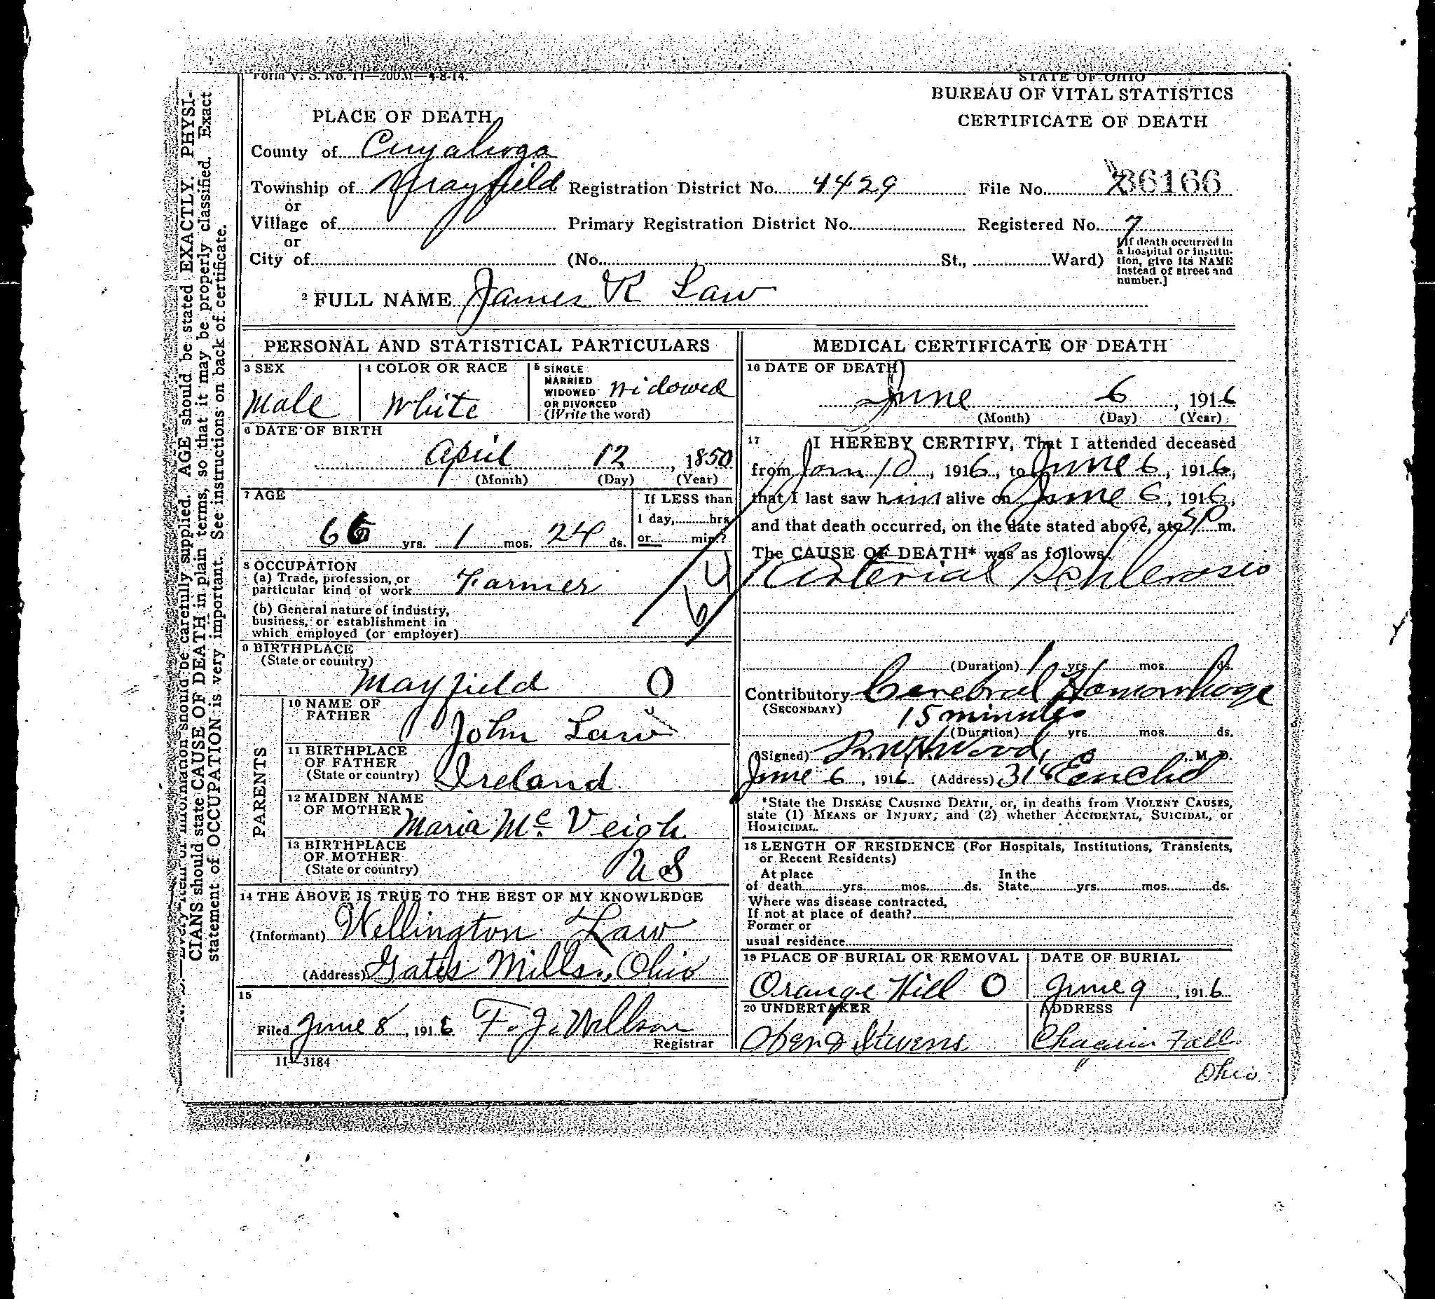 Form V. S. No. 11—200M—4-8-14.
STATE OF OHIO
BUREAU OF VITAL STATISTICS
CERTIFICATE OF DEATH
PLACE OF DEATH
County of Cuyahoga
Township of Mayfield Registration District No. 4429 File No. 36166
or
Village of Primary Registration District No. Registered No. 7
or
City of (No. St., Ward)
[If death occurred in
a hospital or institu-
tion, give its NAME
instead of street and
number.]
2 FULL NAME James R Law
PERSONAL AND STATISTICAL PARTICULARS
3 SEX
Male
4 COLOR OR RACE
White
5 SINGLE
MARRIED
WIDOWED
OR DIVORCED
(Write the word)
Widowed
6 DATE OF BIRTH
April 12, 1850
(Month) (Day) (Year)
7 AGE
66 yrs. 1 mos. 24 ds.
If LESS than
1 day, hrs.
or min.?
8 OCCUPATION
(a) Trade, profession, or
particular kind of work Farmer
(b) General nature of industry,
business, or establishment in
which employed (or employer)
9 BIRTHPLACE
(State or country)
Mayfield O
PARENTS
10 NAME OF
FATHER
John Law
11 BIRTHPLACE
OF FATHER
(State or country) Ireland
12 MAIDEN NAME
OF MOTHER
Maria Mc Veigh
13 BIRTHPLACE
OF MOTHER
(State or country) U S
14 THE ABOVE IS TRUE TO THE BEST OF MY KNOWLEDGE
(Informant) Wellington Law
(Address) Gates Mills, Ohio
15
Filed June 8, 1916 F. J. Willson
Registrar
11—3184
MEDICAL CERTIFICATE OF DEATH
16 DATE OF DEATH
June 6, 1916
(Month) (Day) (Year)
17 I HEREBY CERTIFY, That I attended deceased
from Jan 10, 1916, to June 6, 1916,
that I last saw him alive on June 6, 1916,
and that death occurred, on the date stated above, at 5 P m.
The CAUSE OF DEATH* was as follows:
Arterial Schlerosis
(Duration) 1 yrs. mos. ds.
Contributory Cerebral Hemorrhage
(SECONDARY)
15 minutes
(Duration) yrs. mos. ds.
(Signed) Wood, M. D.
June 6, 1916 (Address) 318 Euclid
*State the DISEASE CAUSING DEATH, or, in deaths from VIOLENT CAUSES,
state (1) MEANS OF INJURY; and (2) whether ACCIDENTAL, SUICIDAL, or
HOMICIDAL.
18 LENGTH OF RESIDENCE (For Hospitals, Institutions, Transients,
or Recent Residents)
At place In the
of death yrs. mos. ds. State yrs. mos. ds.
Where was disease contracted,
If not at place of death?
Former or
usual residence
19 PLACE OF BURIAL OR REMOVAL
Orange Hill O
DATE OF BURIAL
June 9, 1916
20 UNDERTAKER
Stevens
ADDRESS
Chagrin Falls
Ohio
CIANS should state CAUSE OF DEATH in plain terms, so that it may be properly classified. Exact
statement of OCCUPATION is very important. See instructions on back of certificate.
information should be carefully supplied. AGE should be stated EXACTLY. PHYSI-